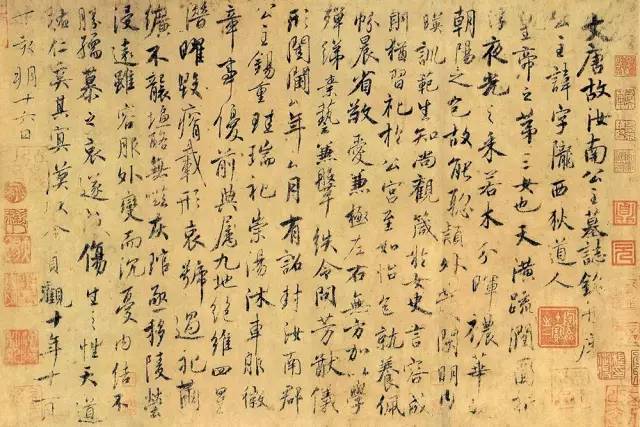 大唐故汝南公主墓誌銘并序
公主諱字隴西狄道人
皇帝之第三女也天潢疏潤圓折
浮夜光之采若木分暉穠華
朝陽之色故能聡穎外發閑明內
暎訓範生知尚觀箴於女史言容成
則猶習礼於公宮至如怡色就養佩
帉晨省敬愛兼極左右無方加以學
殫綈素藝兼鞶紩令問芳猷儀
形閨閫年月有詔封汝南郡
公主錫重珪瑞礼崇湯沐車服徽
章事優前典屬九地絕維四星
潛曜毀瘠載形哀號過礼繭
纊不襲塩酪無嗞灰琯亟移陵塋
浸遠雖容服外變而沉憂內結不
勝孺慕之哀遂成傷生之性天道
祐仁奚其冥漠以今貞觀十年十一
丁亥朔十六日